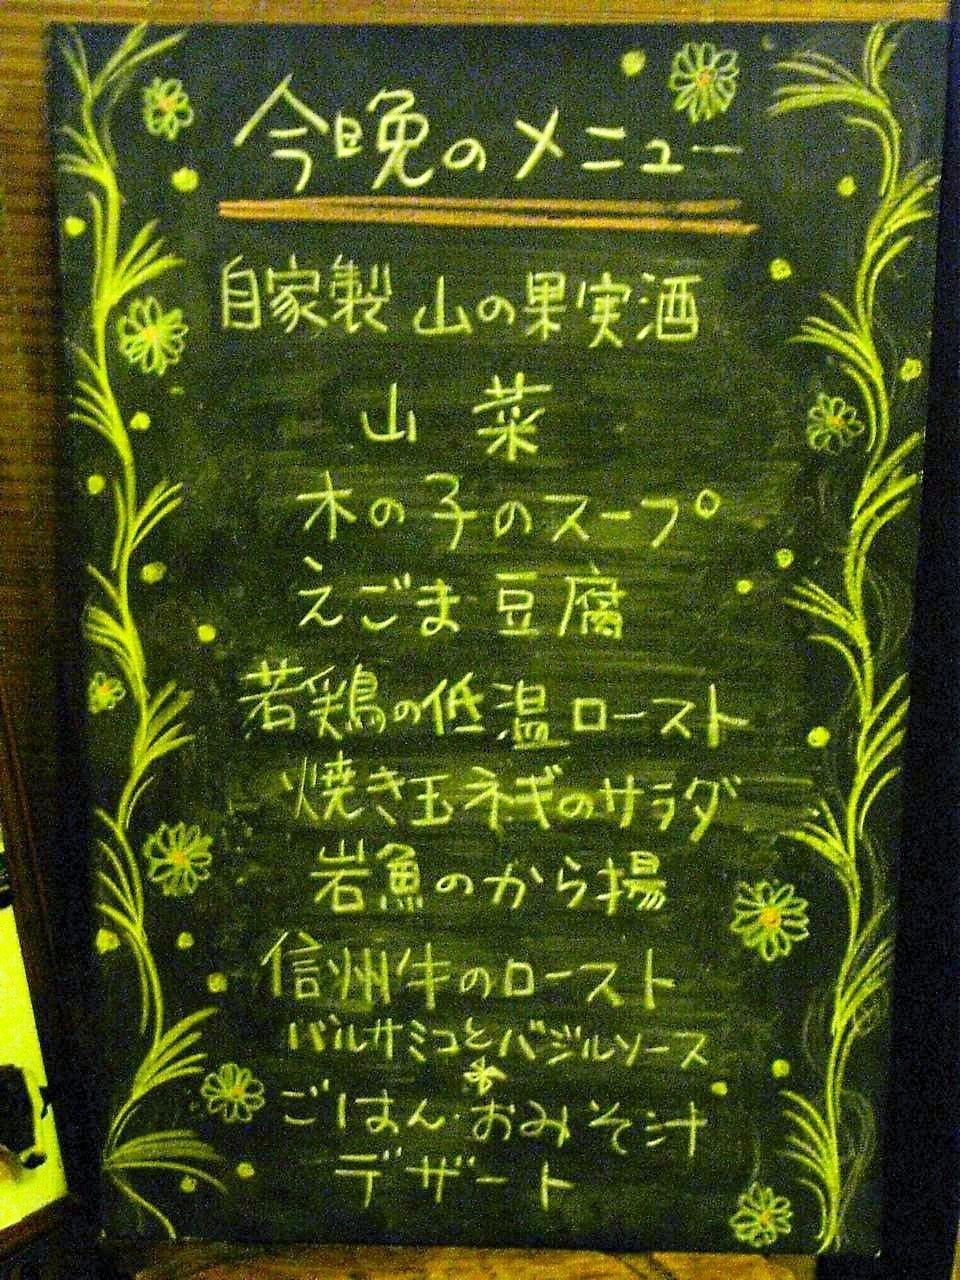 今晩のメニュー
自家製 山の果実酒
山 菜
木の子のスープ
えごま 豆腐
若鶏の低温ロースト
焼き玉ネギのサラダ
岩魚のから揚
信州牛のロースト
バルサミコとバジルソース
ごはん・おみそ汁
デザート